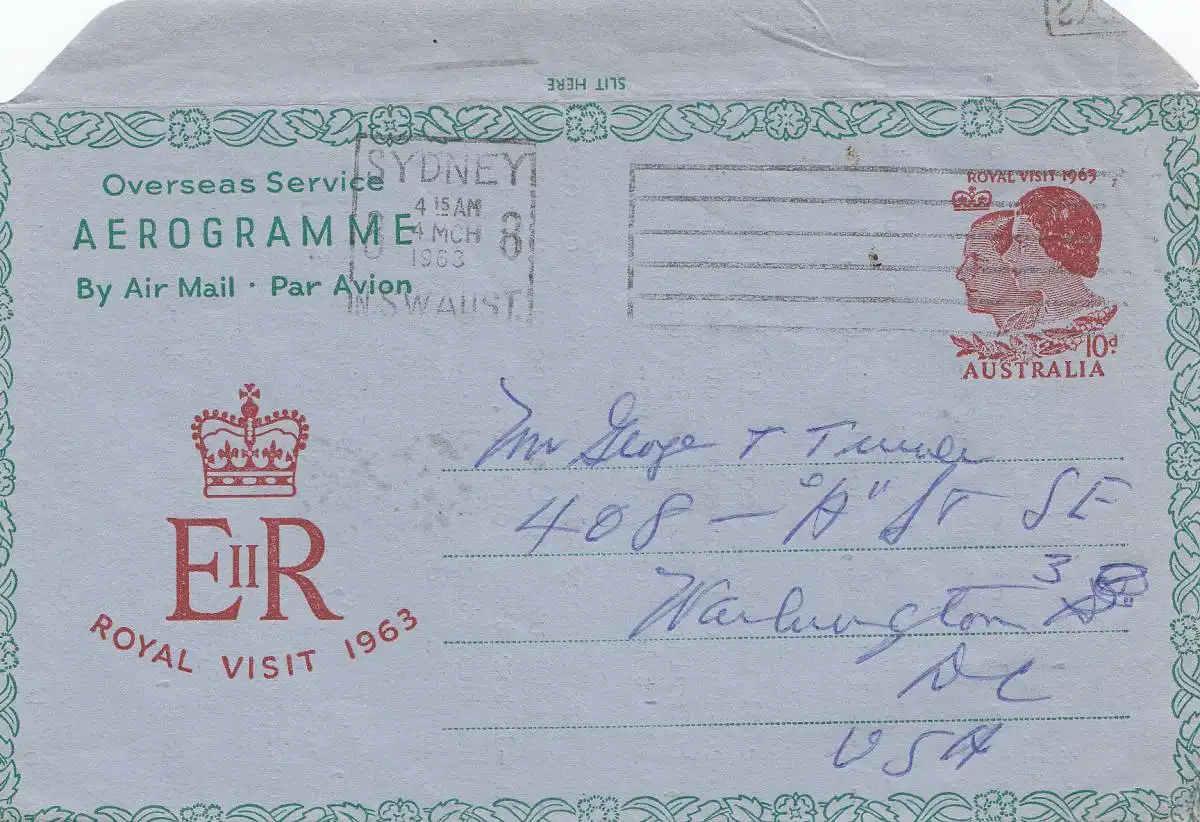 SLIT HERE
Overseas Service
AEROGRAMME
By Air Mail · Par Avion
SYDNEY
4 15 AM
4 MCH
1963
8
N.S.W. AUST.
ROYAL VISIT 1963
10d
AUSTRALIA
EIIR
ROYAL VISIT 1963
Mr George T
408 - "A" St SE
Washington 3
DC
USA